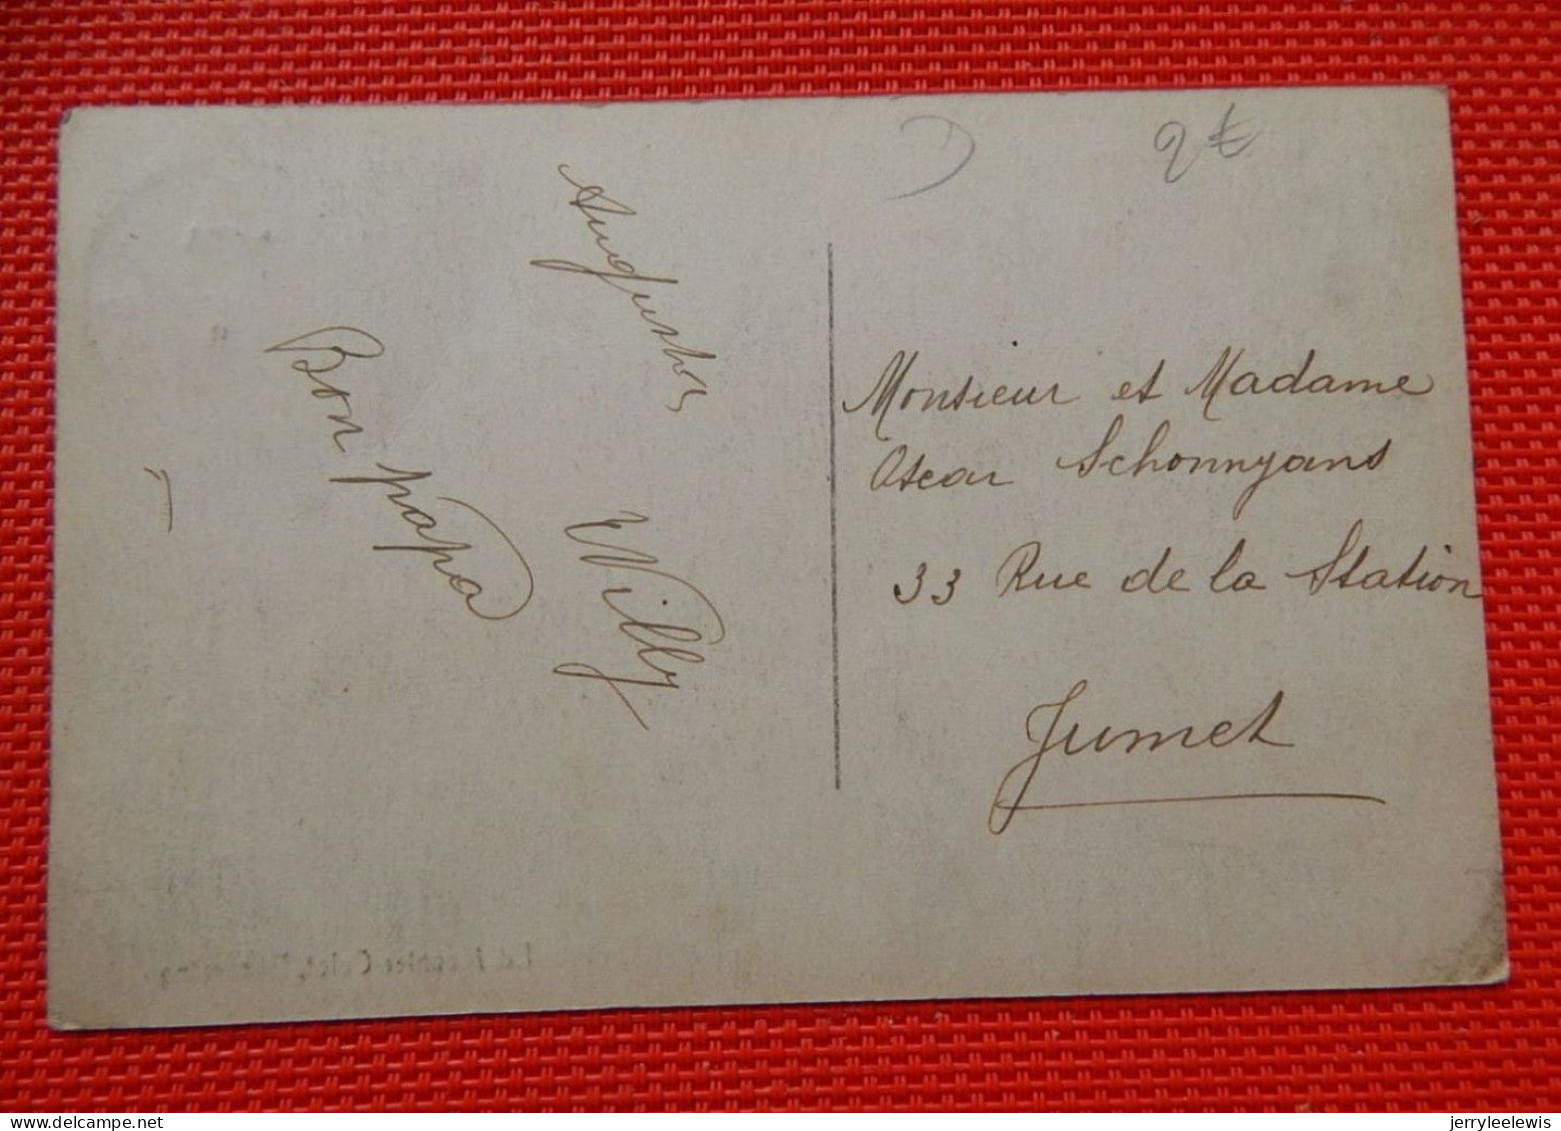 2 €
Bon papa
Willy
Monsieur et Madame
Oscar Schonnyans
33 Rue de la Station
Jumet
delcampe.net
jerryleelewis